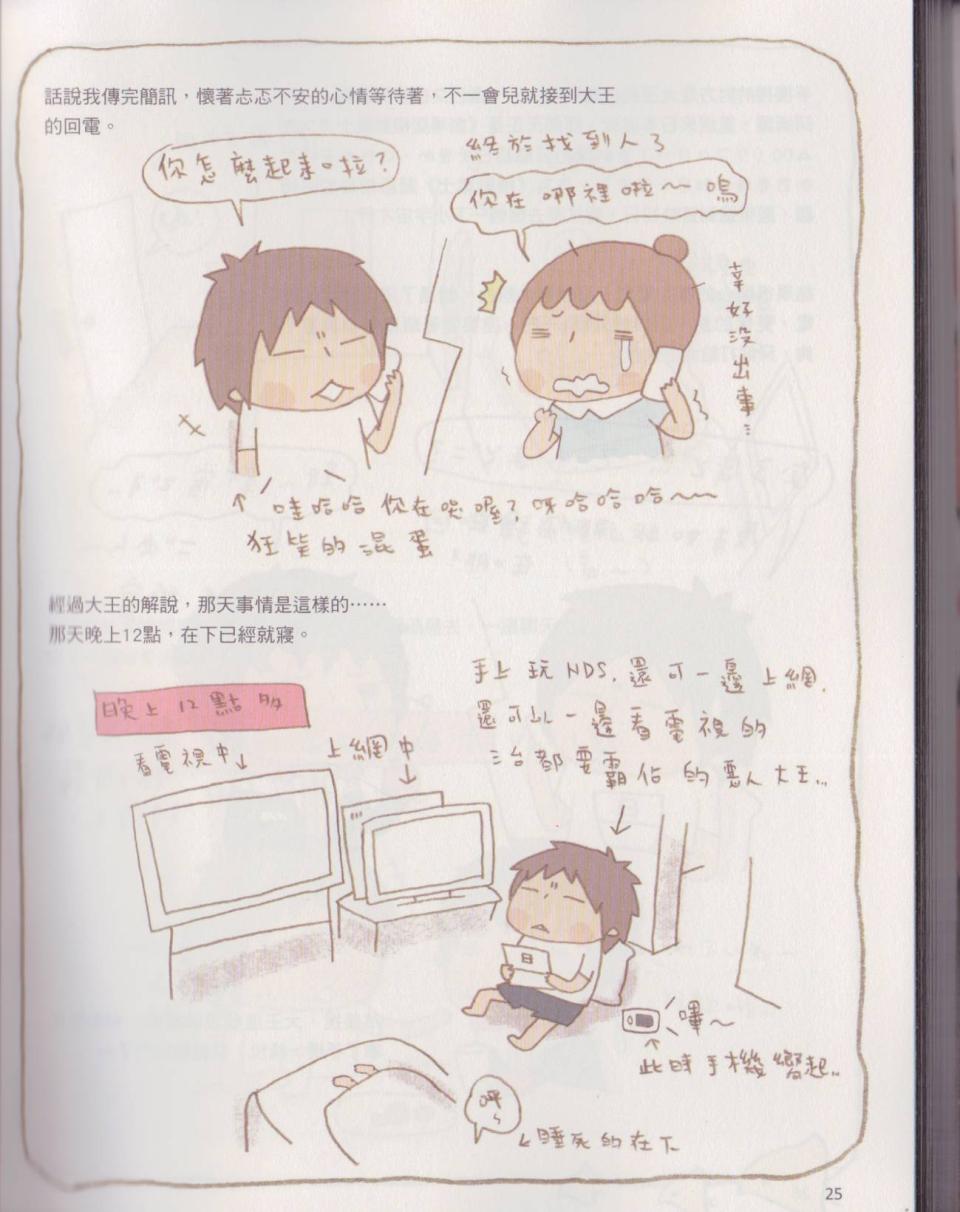 話說我傳完簡訊，懷著忐忑不安的心情等待著，不一會兒就接到大王
的回電。
你怎麼起來啦？
終於找到人了
你在哪裡啦～嗚
幸好沒出事…
哇哈哈你在哭喔？呀哈哈哈～～
狂笑的混蛋
經過大王的解說，那天事情是這樣的……
那天晚上12點，在下已經就寢。
晚上12點多
看電視中
上網中
手上玩NDS，還可一邊上網，
還可以一邊看電視的
什都要霸佔的惡人大王…
嗶～
此時手機響起…
呼～
睡死的在下
25